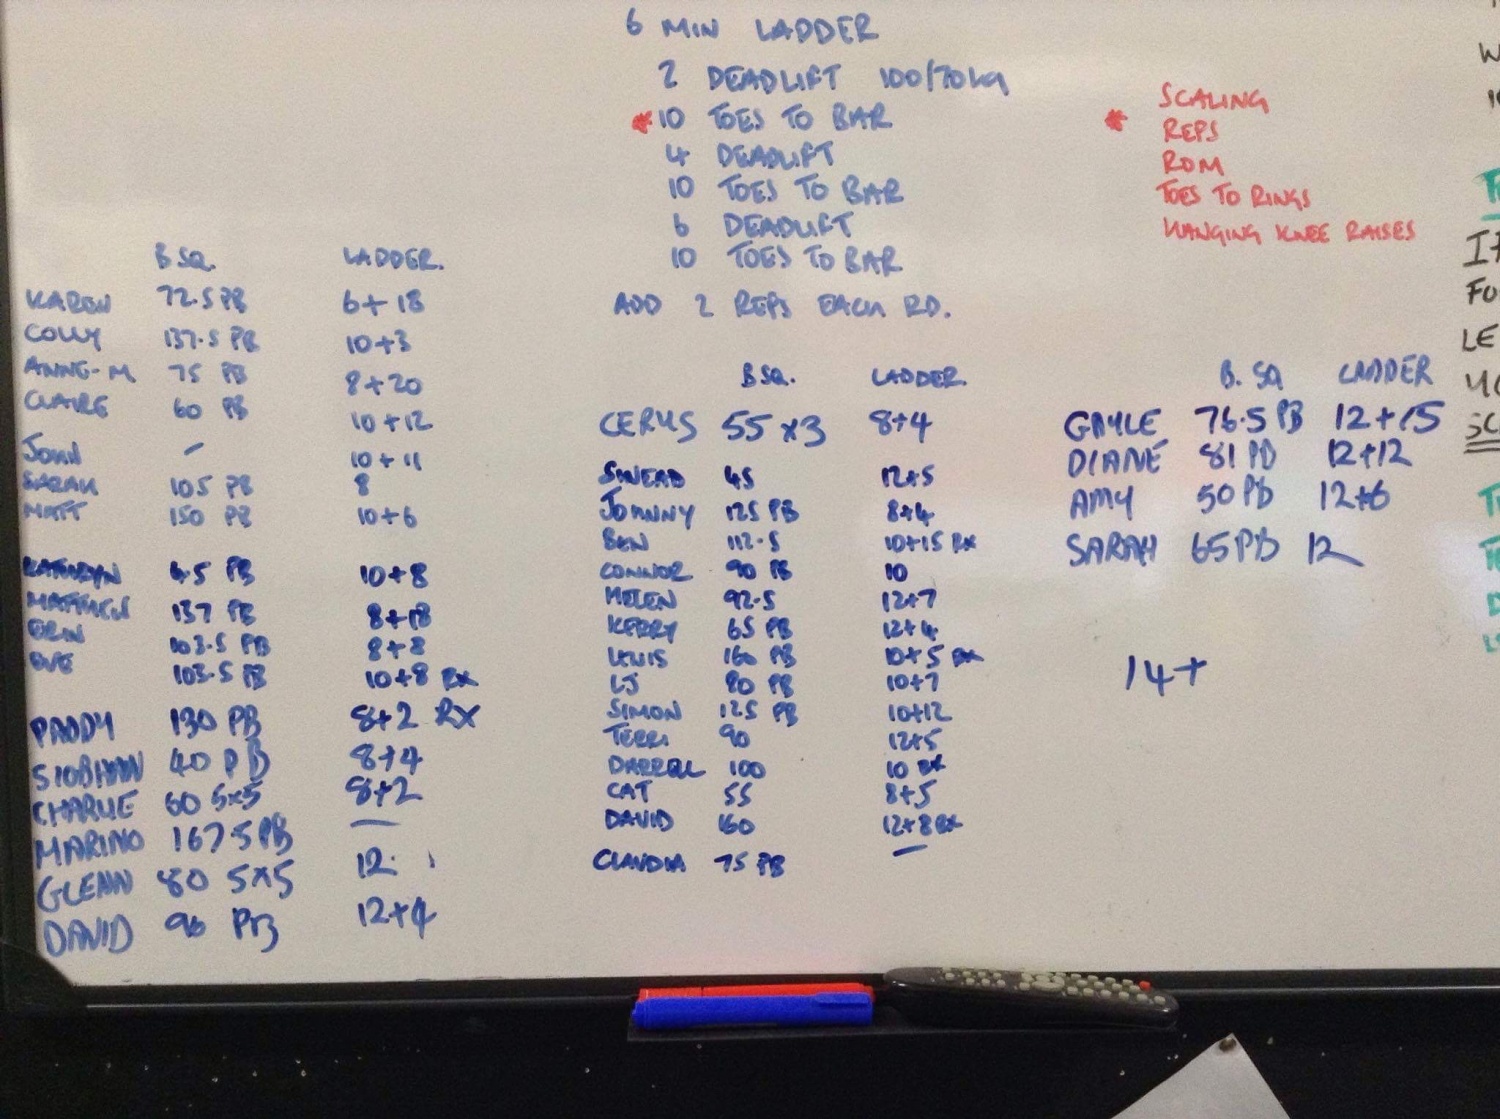 6 MIN LADDER
2 DEADLIFT 100/70kg
* 10 TOES TO BAR
4 DEADLIFT
10 TOES TO BAR
6 DEADLIFT
10 TOES TO BAR
ADD 2 REPS EACH RD.
* SCALING
REPS
ROM
TOES TO RINGS
HANGING KNEE RAISES
B SQ. LADDER.
KAREN 72.5 PB 6+18
COLLY 137.5 PB 10+3
ANNE-M 75 PB 8+20
CLAIRE 60 PB 10+12
JOHN - 10+11
SARAH 105 PB 8
MATT 150 PB 10+6
KATHRYN 45 PB 10+8
137 PB 8+18
ERIN 103.5 PB 8+8
103.5 PB 10+8 RX
PADDY 130 PB 8+2 RX
SIOBHAN 40 PB 8+4
CHARLIE 60 5x5 8+2
MARINO 167.5 PB —
GLENN 80 5x5 12
DAVID 96 PB 12+4
B SQ. LADDER.
CERYS 55 x3 8+4
SINEAD 45 12+5
JOHNNY 125 PB 8+4
BEN 112.5 10+15 RX
CONNOR 90 PB 10
HELEN 92.5 12+7
KERRY 65 PB 12+4
LEWIS 160 PB 10+5 RX
LJ 80 PB 10+7
SIMON 125 PB 10+12
TERRI 90 12+5
DARRELL 100 10 RX
CAT 55 8+5
DAVID 160 12+8 RX
CLAUDIA 75 PB —
B. SQ LADDER
GAYLE 76.5 PB 12+15
DIANE 81 PB 12+12
AMY 50 PB 12+6
SARAH 65 PB 12
14+
LE